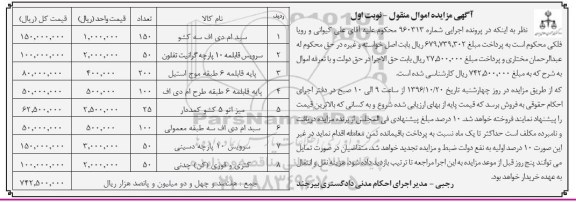 آگهی مزایده اموال منقول - نوبت اول
نظر به اینکه در پرونده اجرایی شماره ۹۶۰۳۱۳ محکوم علیه آقای علی کیوانی و رویا
فلکی محکوم است به پرداخت مبلغ ۶۷۹,۷۳۹,۳۰۲ ریال بابت اصل خواسته و غیره در حق محکوم له
عبدالرحمان مختاری و پرداخت مبلغ ۲۷,۵۰۰,۰۰۰ ریال بابت حق الاجرا در حق دولت و با تعرفه اموال
به شرح که به مبلغ ۷۴۲,۵۰۰,۰۰۰ ریال کارشناسی شده است.
که از طریق مزایده در روز چهارشنبه تاریخ ۱۳۹۶/۱۰/۲۰ از ساعت ۹ الی ۱۰ صبح در دفتر اجرای
احکام حقوقی به فروش برسد که قیمت پایه از بهای ارزیابی شده شروع و به کسانی که بالاترین قیمت
را پیشنهاد نمایند فروخته خواهد شد. ۱۰ درصد مبلغ پیشنهادی فی المجلس از برنده مزایده دریافت
و نامبرده مکلف است حداکثر تا یک ماه نسبت به پرداخت باقیمانده ثمن معامله اقدام نماید در غیر
این صورت ۱۰ درصد اولیه به نفع دولت ضبط و مزایده تجدید خواهد شد. متقاضیان در صورت تمایل
می توانند پنج روز قبل از موعد مزایده به این اجرا مراجعه تا ترتیب بازدید داده شود. هزینه نقل و انتقال
به عهده خریدار خواهد بود.
رجبی - مدیر اجرای احکام مدنی دادگستری بیرجند
ردیف نام کالا تعداد قیمت واحد (ریال) قیمت کل (ریال)
۱ سبد ام دی اف سه کشو ۱۵۰ ۱,۰۰۰,۰۰۰ ۱۵۰,۰۰۰,۰۰۰
۲ سرویس قابلمه ۱۰ پارچه گرانیت تفلون ۵۰ ۲,۰۰۰,۰۰۰ ۱۰۰,۰۰۰,۰۰۰
۳ پایه قابلمه ۶ طبقه موج استیل ۲۰۰ ۴۰۰,۰۰۰ ۸۰,۰۰۰,۰۰۰
۴ پایه قابلمه ۶ طبقه طرح ام دی اف ۱۰۰ ۵۰۰,۰۰۰ ۵۰,۰۰۰,۰۰۰
۵ میز اتو ۵ کشو کمددار ۲۵ ۲,۵۰۰,۰۰۰ ۶۲,۵۰۰,۰۰۰
۶ سبد ام دی اف سه طبقه معمولی ۱۰۰ ۵۰۰,۰۰۰ ۵۰,۰۰۰,۰۰۰
۷ سرویس ۴۰ پارچه دسینی ۵۰ ۳,۰۰۰,۰۰۰ ۱۵۰,۰۰۰,۰۰۰
۸ کتری و قوری (کن) چدنی ۵۰ ۲,۰۰۰,۰۰۰ ۱۰۰,۰۰۰,۰۰۰
جمع: هفتصد و چهل و دو میلیون و پانصد هزار ریال ۷۴۲,۵۰۰,۰۰۰